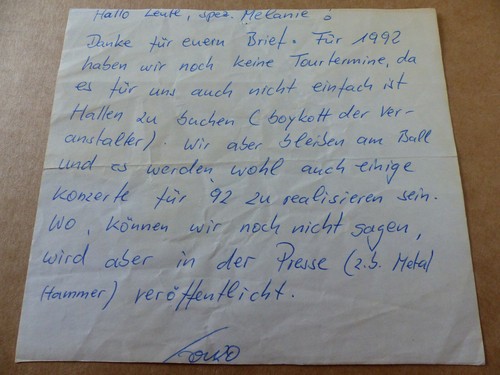 Hallo Leute, spez. Melanie!
Danke für euern Brief. Für 1992
haben wir noch keine Tourtermine, da
es für uns auch nicht einfach ist
Hallen zu buchen (boykott der Ver-
anstalter). Wir aber bleiben am Ball
und es werden wohl auch einige
Konzerte für 92 zu realisieren sein.
Wo, können wir noch nicht sagen,
wird aber in der Presse (z.b. Metal
Hammer) veröffentlicht.